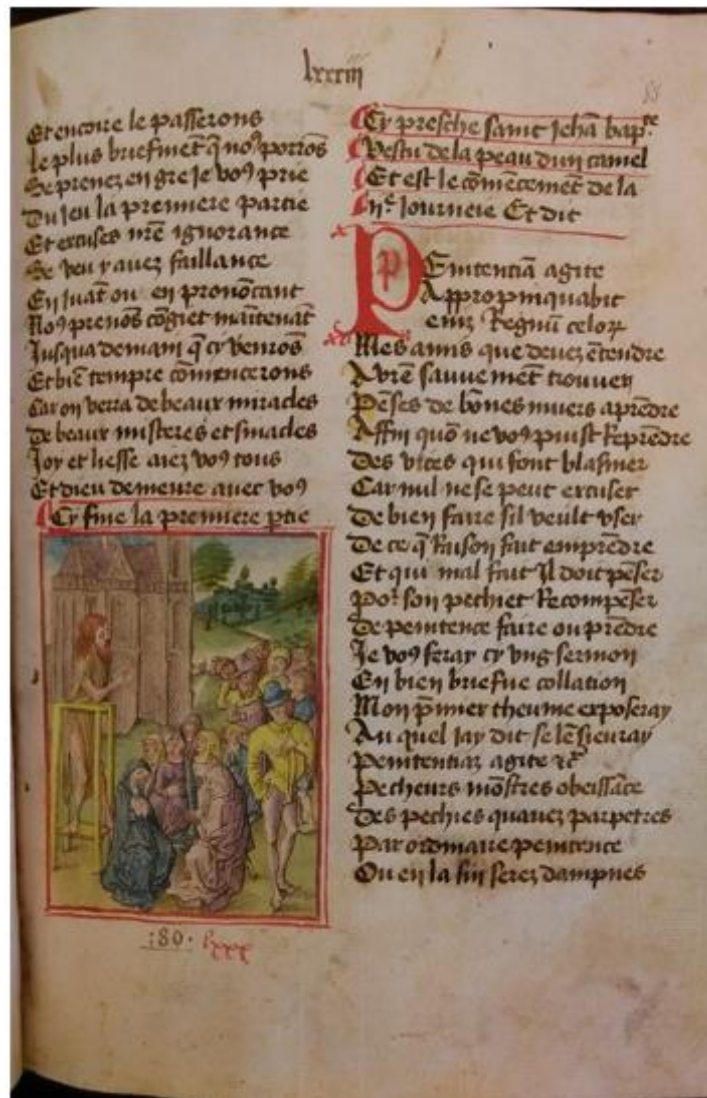 lxxxiii
88
Et encoire le passerons
Le plus briefmēt q̄ noꝰ porrōs
Se prenez en gre je voꝰ prie
Du jeu la premiere partie
Et excuses nr̄e ignorance
Se veu y avez faillance
En juāt ou en pronōcant
Noꝰ prenōs cōgiet maītenāt
Jusqua demain q̄ cy venrōs
Et biē tempre cōmencerons
Car on verra de beaux miracles
De beaux misteres et sinacles
Joy et liesse aiez voꝰ tous
Et dieu demeure avec voꝰ
Cy fine la premiere ptie
:80· lxxx
Cy presche saint Jehā bap.te
Vestu de la peau dun camel
Et est le cōmēcemēt de la
IIe. Journeie Et dit
PEnitenciā agite
Appropinquabit
enīz Regnū celoꝝ
Mes amis que devez ētendre
A vr̄e sauvemēt trouver
Pēses de bōnes meurs aprēdre
Affin quō ne voꝰ puist Reprēdre
Des vices qui font blasmer
Car nul ne se peut excuser
De bien faire sil veult vser
De ce q̄ Raison fait emprēdre
Et qui mal fait Il doit pēser
Poꝛ son pechiet Recompēser
De penitence faire ou prēdre
Je voꝰ feray cy vng sermon
En bien briefue collation
Mon pmier theume exposeray
Au quel jay dit se lēsieuray
Penitentiaz agite ⁊c̄
Pecheurs mōstres obeissāce
Des pechies quavez parpetres
Par ordinaire penitence
Ou en la fin serez dampnes